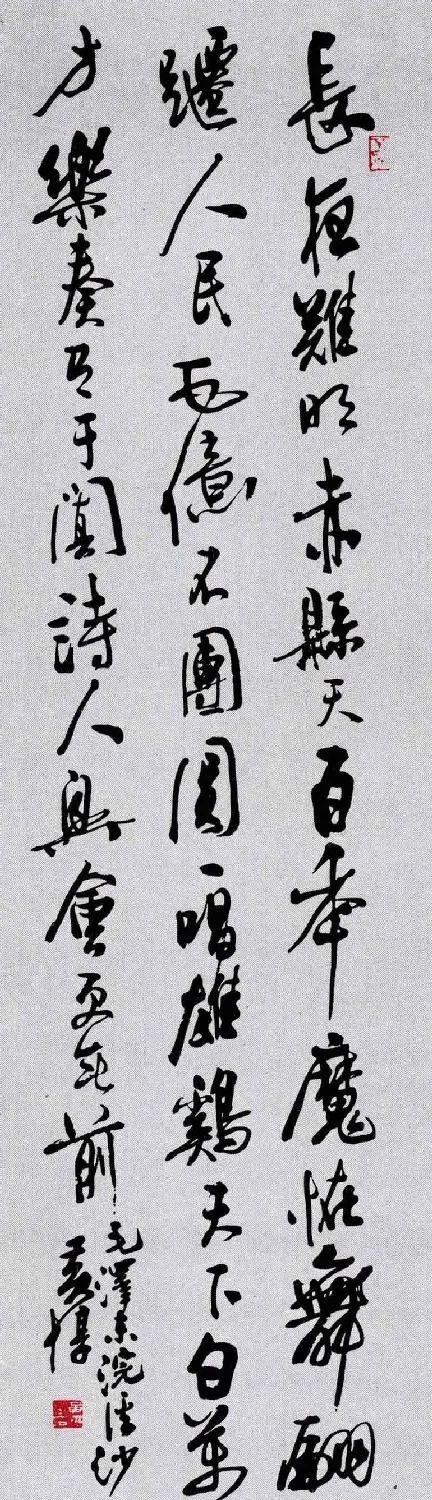 長夜難明赤縣天百年魔怪舞翩
躚人民五億不團圓一唱雄鷄天下白萬
方樂奏有于闐詩人興會更無前
毛澤東浣溪沙
黃惇